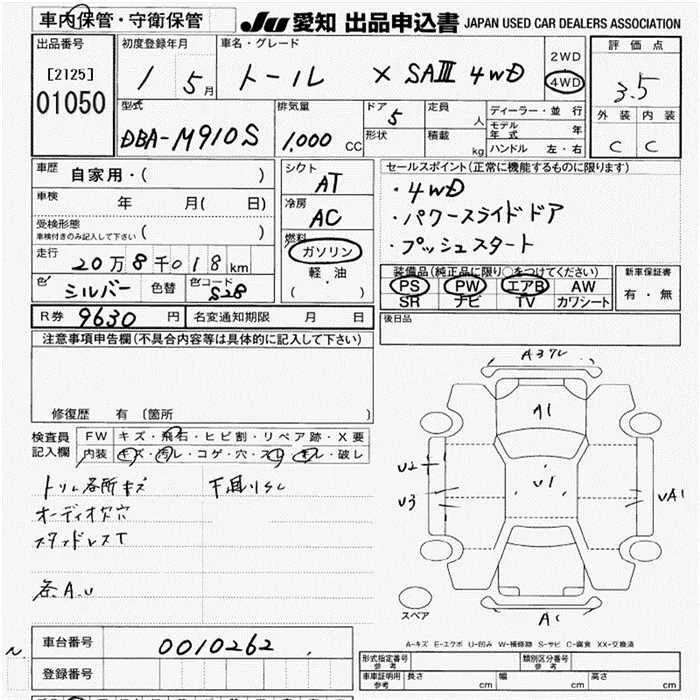 車内保管・守衛保管
JU 愛知 出品申込書 JAPAN USED CAR DEALERS ASSOCIATION
出品番号
[2125]
01050
初度登録年月
1 5月
車名・グレード
トール X SAⅢ 4WD
2WD
4WD
評価点
3.5
外装 内装
C C
型式
DBA-M910S
排気量
1,000 CC
ドア 5
形状
定員 人
積載 kg
ディーラー・並行
モデル年式 年
ハンドル 左・右
車歴
自家用・( )
車検 年 月( 日)
受検形態
車検付きのみ記入して下さい ( )
走行
20万8千018km
色 シルバー 色替 色コード S28
シフト
AT
冷房
AC
燃料
ガソリン
軽油
( ・ )
セールスポイント(正常に機能するものに限ります)
・4WD
・パワースライドドア
・プッシュスタート
装備品(純正品に限り○をつけてください)
PS PW エアB AW
SR ナビ TV カワシート
新車保証書
有・無
R券 9630 円 名変通知期限 月 日
後日品
注意事項申告欄(不具合内容等は具体的に記入して下さい)
修復歴 有 〔箇所 〕
検査員記入欄
FW キズ・飛石・ヒビ割・リペア跡・X要
内装 キズ・汚レ・コゲ・穴・スレ・キレ・破レ
トリム各所キズ
オーディオ欠穴
スタッドレスT
各A.U
下廻りサビ
A3
A1
U2
U3
U1
UA1
スペア
A-キズ E-エクボ U-凹み W-補修跡 S-サビ C-腐食 XX-交換済
車台番号 0010262
登録番号
型式指定番号 参考
類別区分番号 参考
車庫証明用 参考 長さ cm 幅 cm 高さ cm